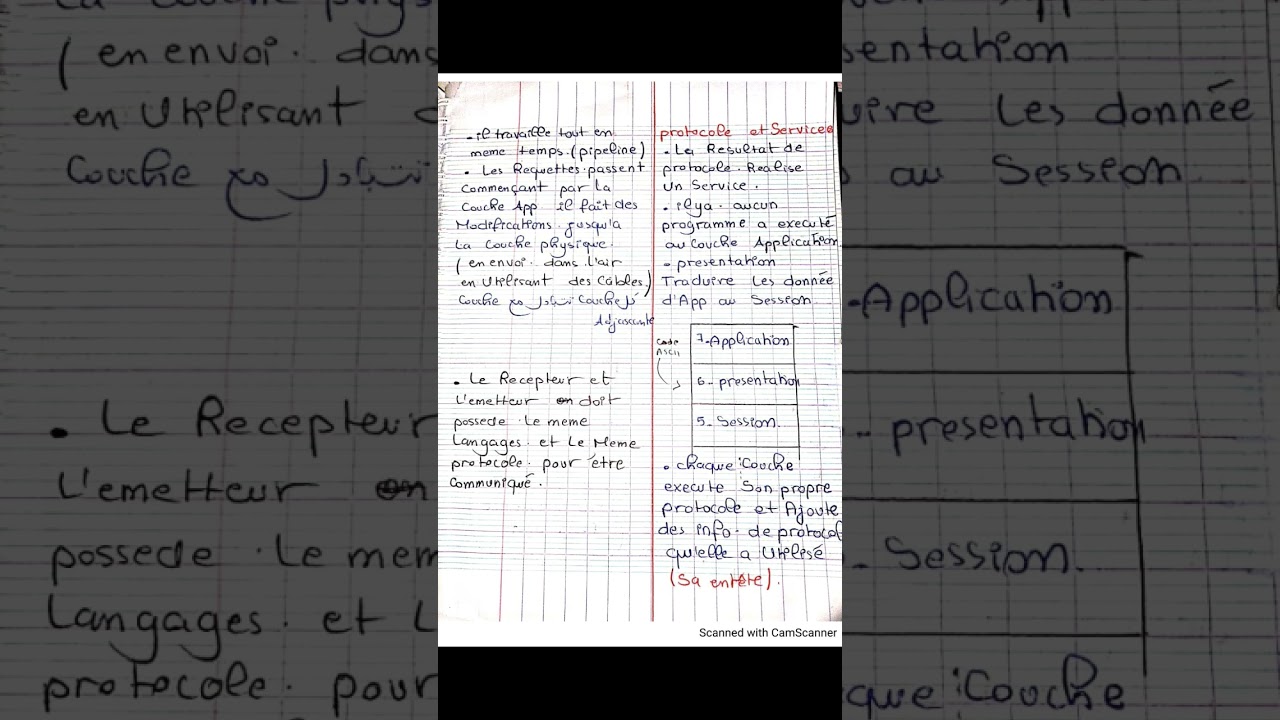 - il travaille tout en
meme temps (pipeline)
• Les Requettes passent
commençant par la
Couche App il fait des
Modifications jusqu'a
la Couche physique.
(en envoi. dans l'air
en Utilisant des Cables)
Couche تتبادل مع Couche
Adjascante
• Le Recepteur et
L'emetteur on doit
possede. Le meme
Langages. et Le Meme
protocole. pour être
Communiqué.
protocole et Services
• La Resultat de
protocole. Realise
Un Service.
• il ya. aucun
programme a executé
au Couche Application
• presentation
Traduire Les donnée
d'App au Session
Code
Ascii
7-Application
6- presentation
5- Session.
• chaque Couche
execute Son propre
protocole et Ajoute
des info. de protocol
qu'elle a Utilisé
(Sa entête).
Scanned with CamScanner